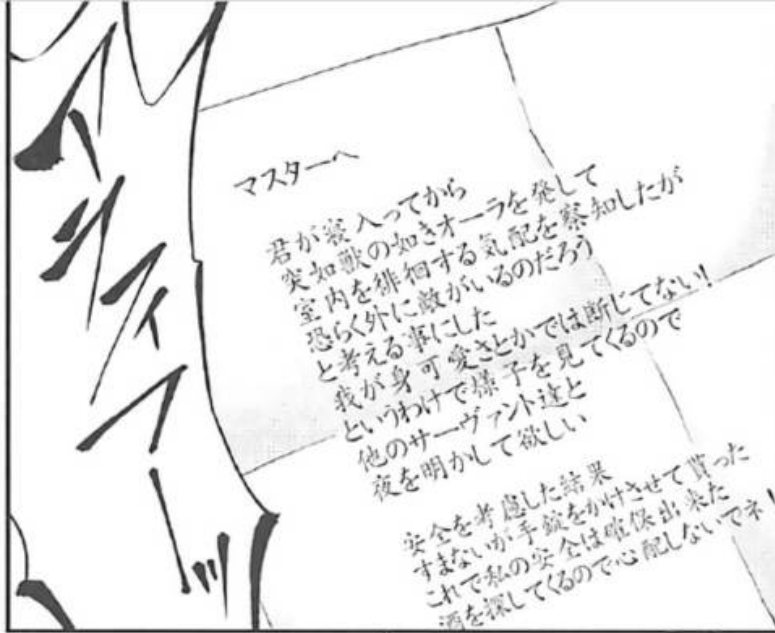 マスターへ
君が寝入ってから
突如獣の如きオーラを発して
室内を徘徊する気配を察知したが
恐らく外に敵がいるのだろう
と考える事にした
我が身可愛さとかでは断じてない!
というわけで様子を見てくるので
他のサーヴァント達と
夜を明かして欲しい
安全を考慮した結果
すまないが手錠をかけさせて貰った
これで私の安全は確保出来た
酒を探してくるので心配しないでネ!